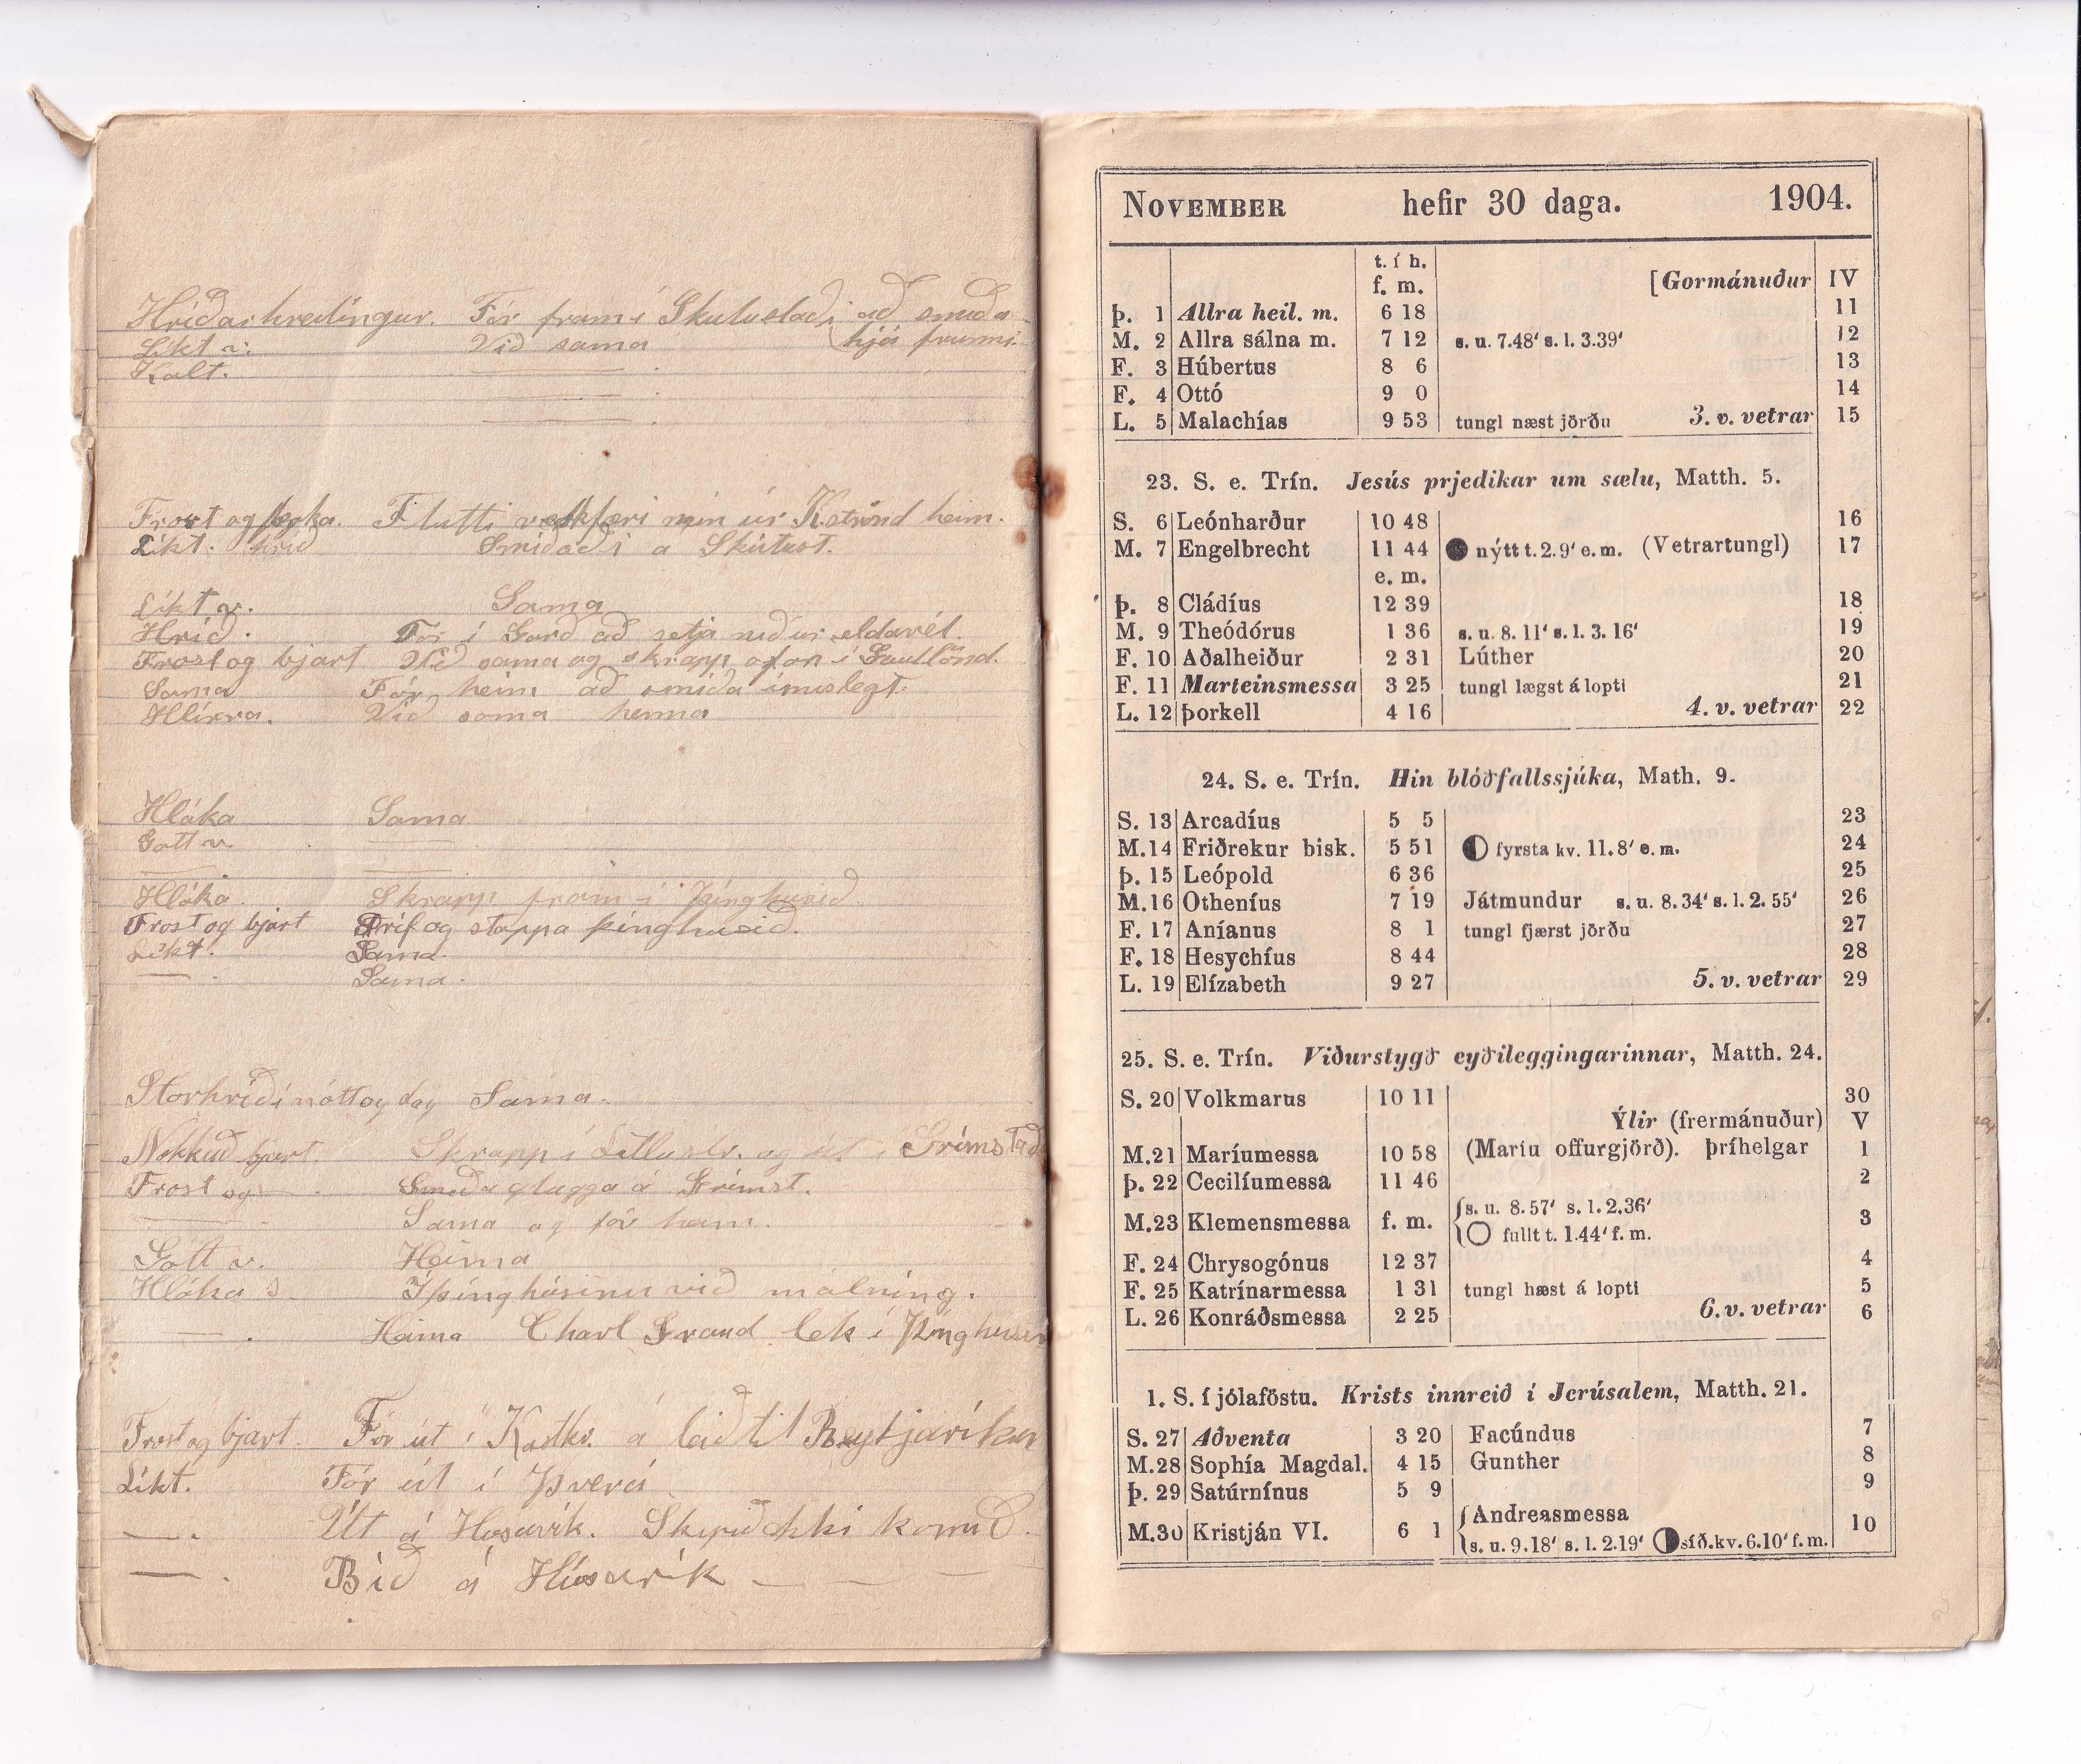 Hríðarhreitingur. Fór fram í Skútustaði að smíða
Líkt v. Við sama hjá
Kalt.
Frost og þoka. Flutti verkfæri mín úr K.strönd heim.
Líkt. hríð Smíðaði á Skútust.
Líkt v. Sama
Hríð. Fór í Garð að setja niður eldavél.
Frost og bjart Við sama og skrapp ofan í Gautlönd.
Sama Fór heim að smíða ímislegt.
Hlírra. Við sama heima
Hláka Sama
Gott v.
Hláka Skrapp fram í Þinghúsið
Frost og bjart Þríf og stoppa þinghúsið.
Líkt. Sama.
Sama.
Stórhríð í nótt og dag Sama.
Nokkuð bjart. Skrapp í Litlustr. og út í Grímstaði
Frost og Smíða glugga á Grímst.
Sama og fór heim.
Gott v. Heima
Hláka S. Í þinghúsinu við málning.
Heima Charl Grand lék í Þinghúsinu
Frost og bjart. Fór út í á leið til Reykjavíkur
Líkt. Fór út í Þverá
Út á Húsavík. Skipið ekki komið.
Bið á Húsavík
NOVEMBER hefir 30 daga. 1904.
t. í h.
f. m. [Gormánuður IV
Þ. 1 Allra heil. m. 6 18 11
M. 2 Allra sálna m. 7 12 s. u. 7.48' s. l. 3.39' 12
F. 3 Húbertus 8 6 13
F. 4 Ottó 9 0 14
L. 5 Malachías 9 53 tungl næst jörðu 3. v. vetrar 15
23. S. e. Trín. Jesús prjedikar um sælu, Matth. 5.
S. 6 Leónharður 10 48 16
M. 7 Engelbrecht 11 44 nýtt t. 2.9' e. m. (Vetrartungl) 17
e. m.
Þ. 8 Cládíus 12 39 18
M. 9 Theódórus 1 36 s. u. 8. 11' s. l. 3. 16' 19
F. 10 Aðalheiður 2 31 Lúther 20
F. 11 Marteinsmessa 3 25 tungl lægst á lopti 21
L. 12 Þorkell 4 16 4. v. vetrar 22
24. S. e. Trín. Hin blóðfallssjúka, Math. 9.
S. 13 Arcadíus 5 5 23
M. 14 Friðrekur bisk. 5 51 fyrsta kv. 11.8' e. m. 24
Þ. 15 Leópold 6 36 25
M. 16 Otheníus 7 19 Játmundur s. u. 8.34' s. l. 2. 55' 26
F. 17 Aníanus 8 1 tungl fjærst jörðu 27
F. 18 Hesychíus 8 44 28
L. 19 Elízabeth 9 27 5. v. vetrar 29
25. S. e. Trín. Viðurstygð eyðileggingarinnar, Matth. 24.
S. 20 Volkmarus 10 11 30
Ýlir (frermánuður) V
M. 21 Maríumessa 10 58 (Maríu offurgjörð). Þríhelgar 1
Þ. 22 Cecilíumessa 11 46 2
M. 23 Klemensmessa f. m. s. u. 8.57' s. l. 2.36' 3
fullt t. 1.44' f. m.
F. 24 Chrysogónus 12 37 4
F. 25 Katrínarmessa 1 31 tungl hæst á lopti 5
L. 26 Konráðsmessa 2 25 6. v. vetrar 6
1. S. í jólaföstu. Krists innreið í Jerúsalem, Matth. 21.
S. 27 Aðventa 3 20 Facúndus 7
M. 28 Sophía Magdal. 4 15 Gunther 8
Þ. 29 Satúrnínus 5 9 9
M. 30 Kristján VI. 6 1 Andreasmessa 10
s. u. 9.18' s. l. 2.19' síð. kv. 6.10' f. m.